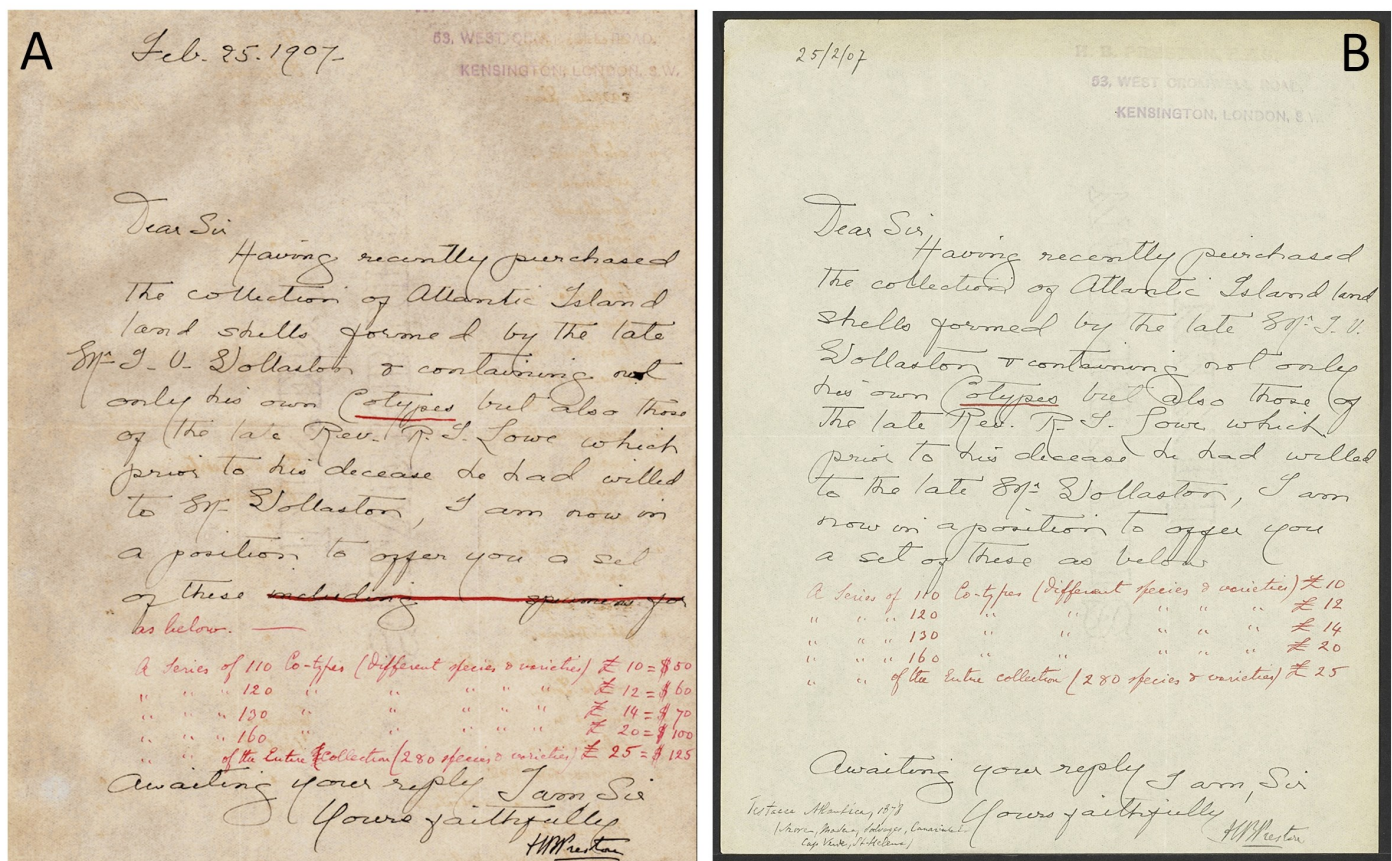 A
Feb. 25. 1907-
53, WEST CROMWELL ROAD,
KENSINGTON, LONDON, S.W.
Dear Sir
Having recently purchased
the collection of Atlantic Island
land shells formed by the late
Mr. T. V. Wollaston & containing not
only his own Cotypes but also those
of the late Rev. R. T. Lowe which
prior to his decease he had willed
to Mr. Wollaston, I am now in
a position to offer you a set
of these including specimens for
as below. —
A Series of 110 Co-types (Different species & varieties) £ 10 = $ 50
" " " 120 " " " " " £ 12 = $ 60
" " " 130 " " " " " £ 14 = $ 70
" " " 160 " " " " " £ 20 = $ 100
" " of the Entire Collection (280 species & varieties) £ 25 = $ 125
Awaiting your reply I am Sir
Yours faithfully
H B Preston
B
25/2/07
H. B. PRESTON,
53, WEST CROMWELL ROAD,
KENSINGTON, LONDON, S.W.
Dear Sir,
Having recently purchased
the collection of Atlantic Island land
shells formed by the late Mr. T. V.
Wollaston & containing not only
his own Cotypes but also those of
the late Rev. R. T. Lowe which
prior to his decease he had willed
to the late Mr. Wollaston, I am
now in a position to offer you
a set of these as below
A Series of 110 Co-types (different species & varieties) £ 10
" " " 120 " " " " " £ 12
" " " 130 " " " " " £ 14
" " " 160 " " " " " £ 20
" " of the Entire collection (280 species & varieties) £ 25
Awaiting your reply I am, Sir
Yours faithfully
H B Preston
Testacea Atlantica, 1878
(Azores, Madeira, Salvages, Canaries,
Cape Verde, St Helena)